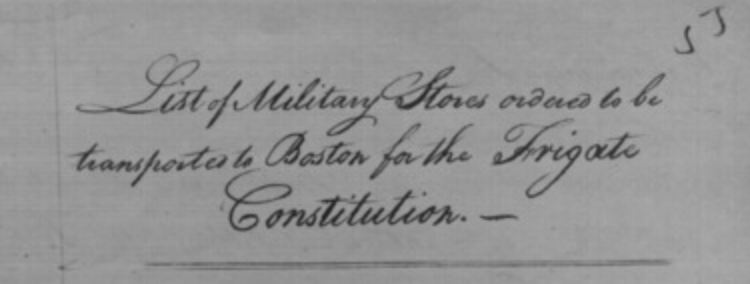 List of Military Stores ordered to be
transported to Boston for the Frigate
Constitution. —